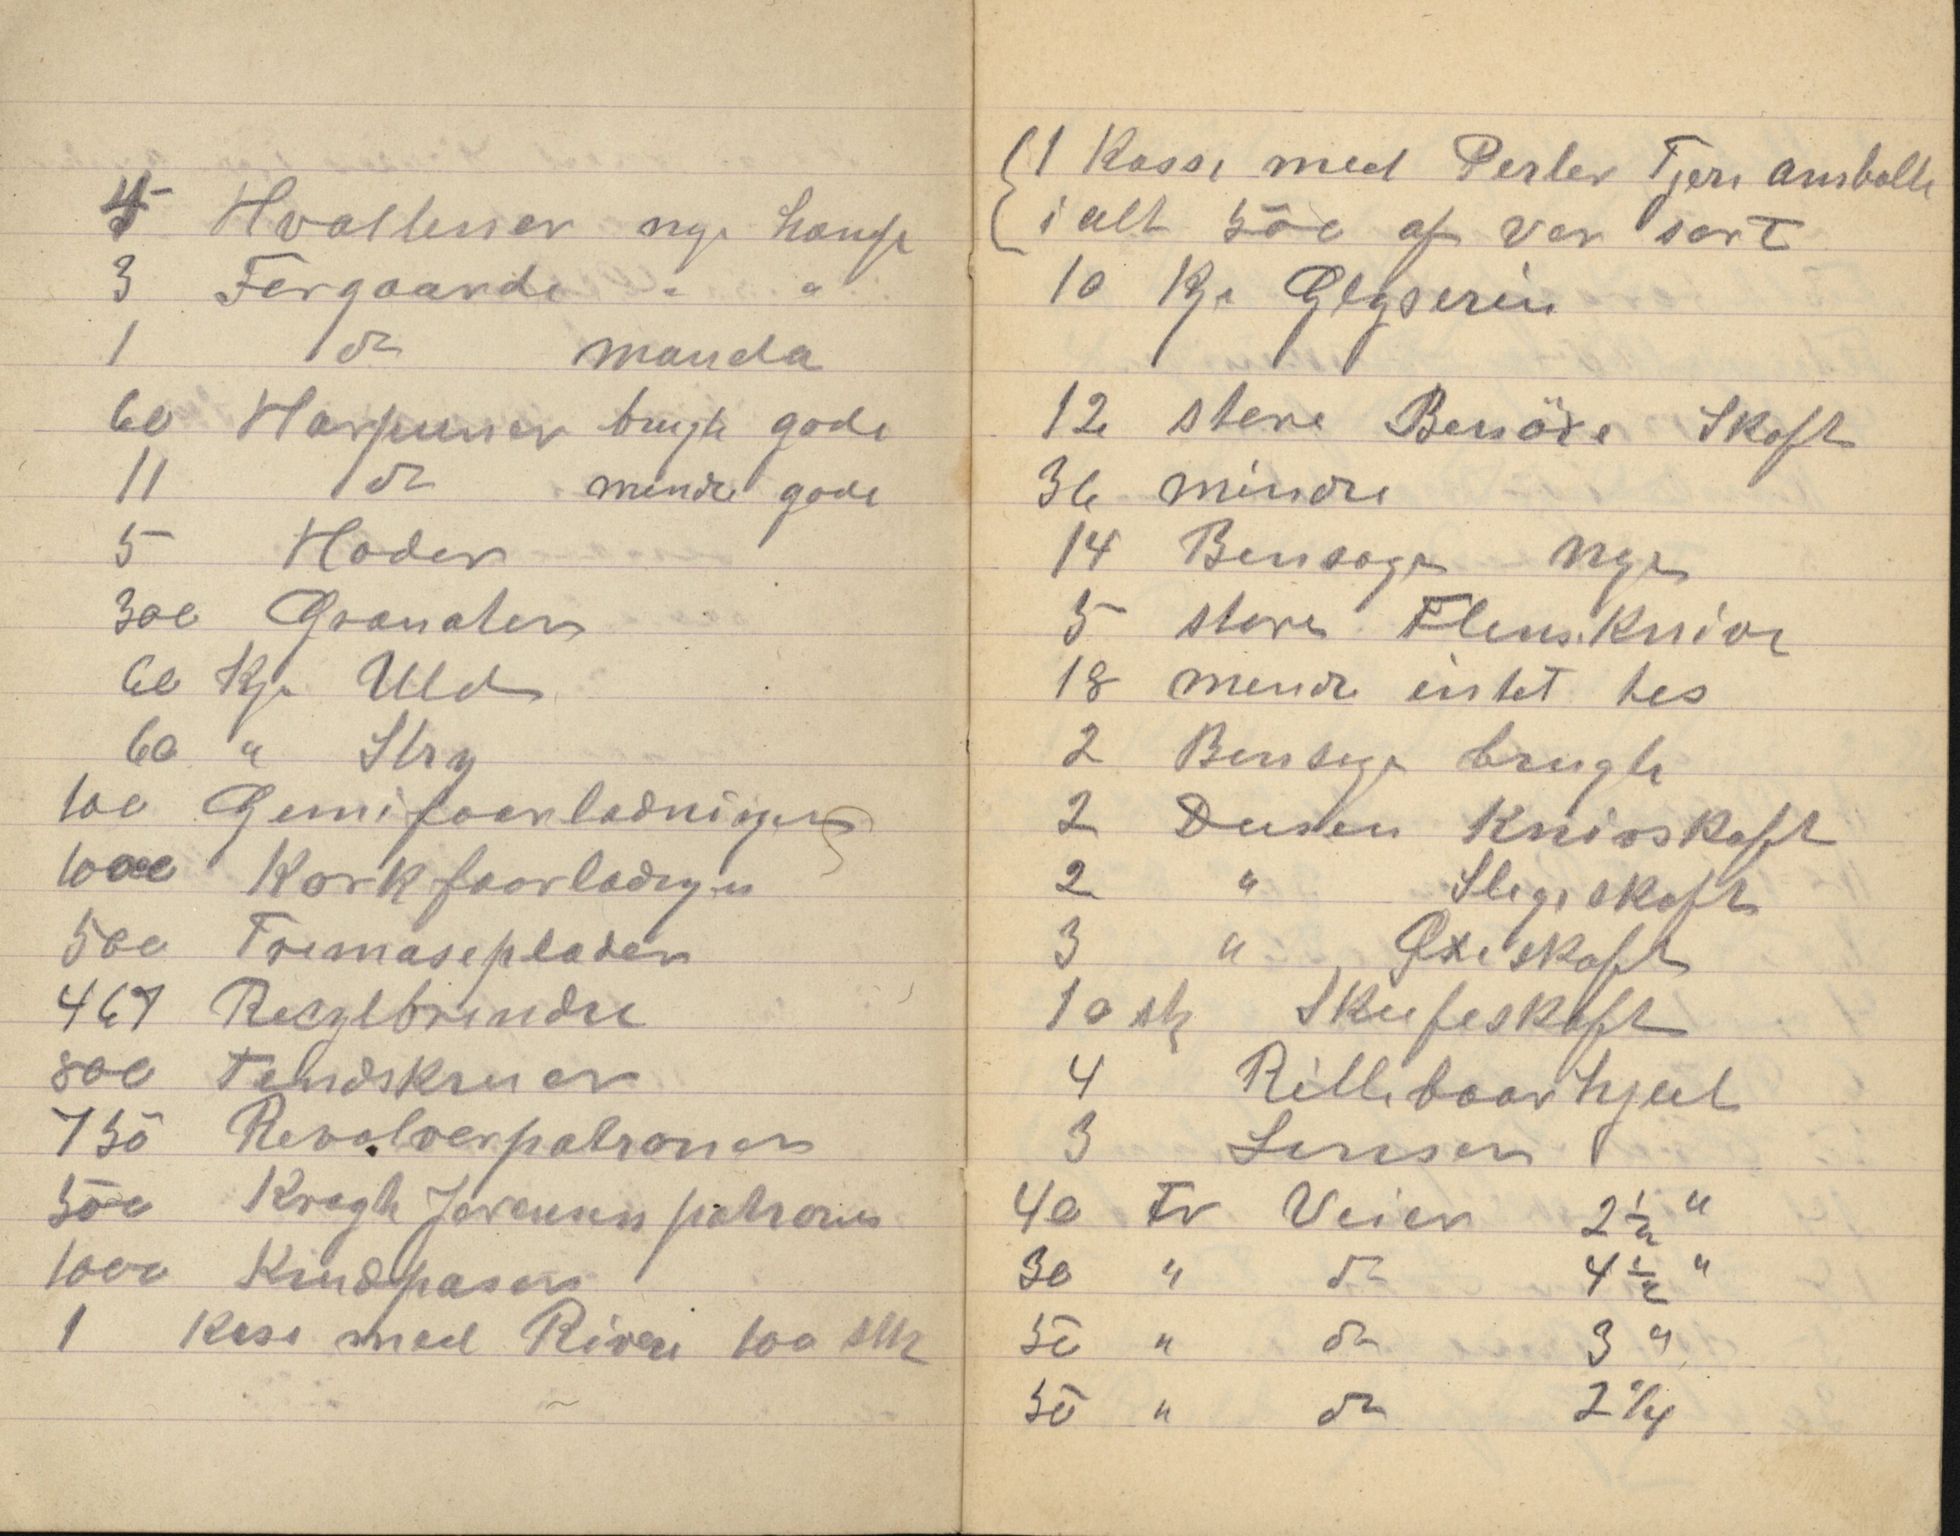 5 Hvalliner nye hamp
3 Forgaarde " "
1 do manila
60 Harpuner brugte gode
11 do mindre gode
5 Hoder
300 Granater
60 Kg. Uld
60 " Stry
100 Gumiforladninger
1000 Korkforladnger
500 Tremasepladen
467 Regelbrindre
800 Tendskruer
750 Revolverpatroner
500 Kragh Jørensen patroner
1000 Krudpaser
1 Kase med Rivere 100 stk
1 Kasse med Perler Tjere ansbolte
i alt 500 af ver sort
10 Kg. Glyserin
12 store Benöxe Skaft
36 mindre
14 Bensage nye
5 store Flensknive
18 mendre intet hes
2 Bensage brugte
2 Dusen Knivskaft
2 " Slegeskaft
3 " Øxeskaft
10 stk Skufeskaft
4 Rillebaarhjul
3 Linser
40 Tr Veier 2 1/2 "
30 " do 4 1/2 "
50 " do 3 "
50 " do 2 1/4